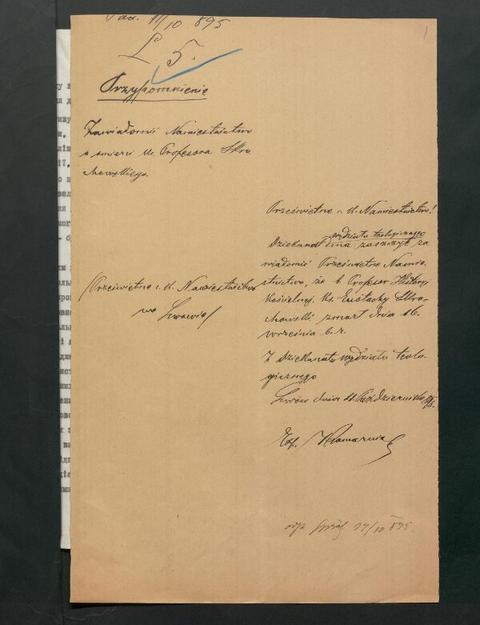 11/10 895
L 5.
Przypomnienie
Zawiadomić Namiestnictwo
o śmierci Profesora Skro
chowskiego
Prześwietne c. k. Namiestnictwo
we Lwowie
Prześwietne c. k. Namiestnictwo!
wydziału teologicznego
Dziekanat ma zaszczyt za
wiadomić Prześwietne Namie
stnictwo, że b. Profesor Historyi
Kościelnej, ks. Eustachy Skro
chowski zmarł dnia 16.
września b. r.
Z Dziekanatu wydziału teolo
gicznego
Lwów dnia 11 Października 895.
11/10 895.
1